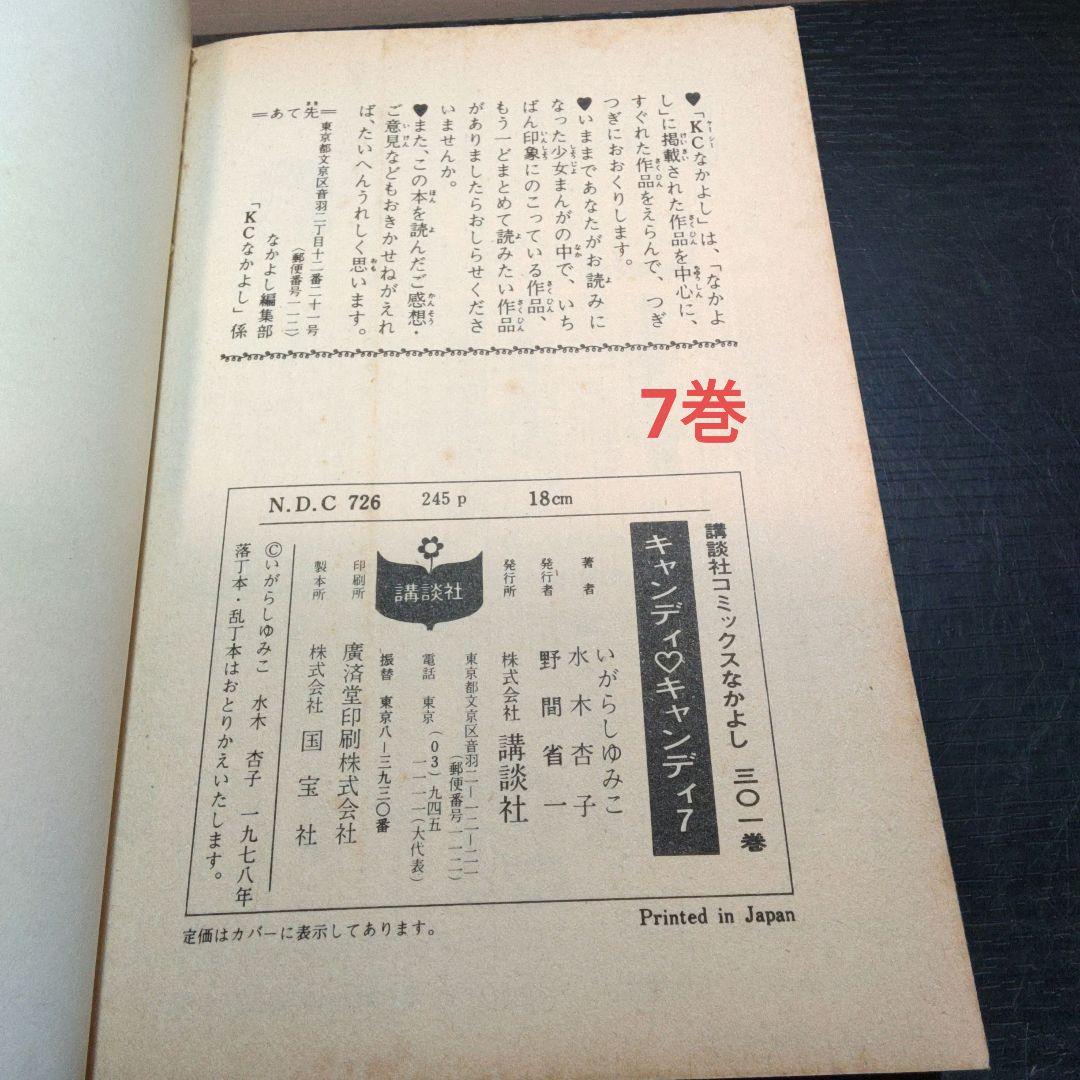 ♥「KCなかよし」は、「なかよ
し」に掲載された作品を中心に、
すぐれた作品をえらんで、つぎ
つぎにおおくりします。
♥いままであなたがお読みに
なった少女まんがの中で、いち
ばん印象にのこっている作品、
もう一どまとめて読みたい作品
がありましたらおしらせくださ
いませんか。
♥また、この本を読んだご感想・
ご意見などもおきかせねがえれ
ば、たいへんうれしく思います。
=あて先=
東京都文京区音羽二丁目十二番二十一号
(郵便番号一一二)
なかよし編集部
「KCなかよし」係
7巻
N.D.C 726 245 p 18cm
講談社コミックスなかよし 三〇一巻
キャンディ♡キャンディ7
著者 いがらしゆみこ
水木杏子
発行者 野間省一
発行所 株式会社 講談社
東京都文京区音羽二-一二-二一
(郵便番号一一二)
電話 東京(03)九四五
一一一一(大代表)
振替 東京八-三九三〇番
講談社
印刷所 廣済堂印刷株式会社
製本所 株式会社 国宝社
©いがらしゆみこ 水木 杏子 一九七八年
落丁本・乱丁本はおとりかえいたします。
Printed in Japan
定価はカバーに表示してあります。